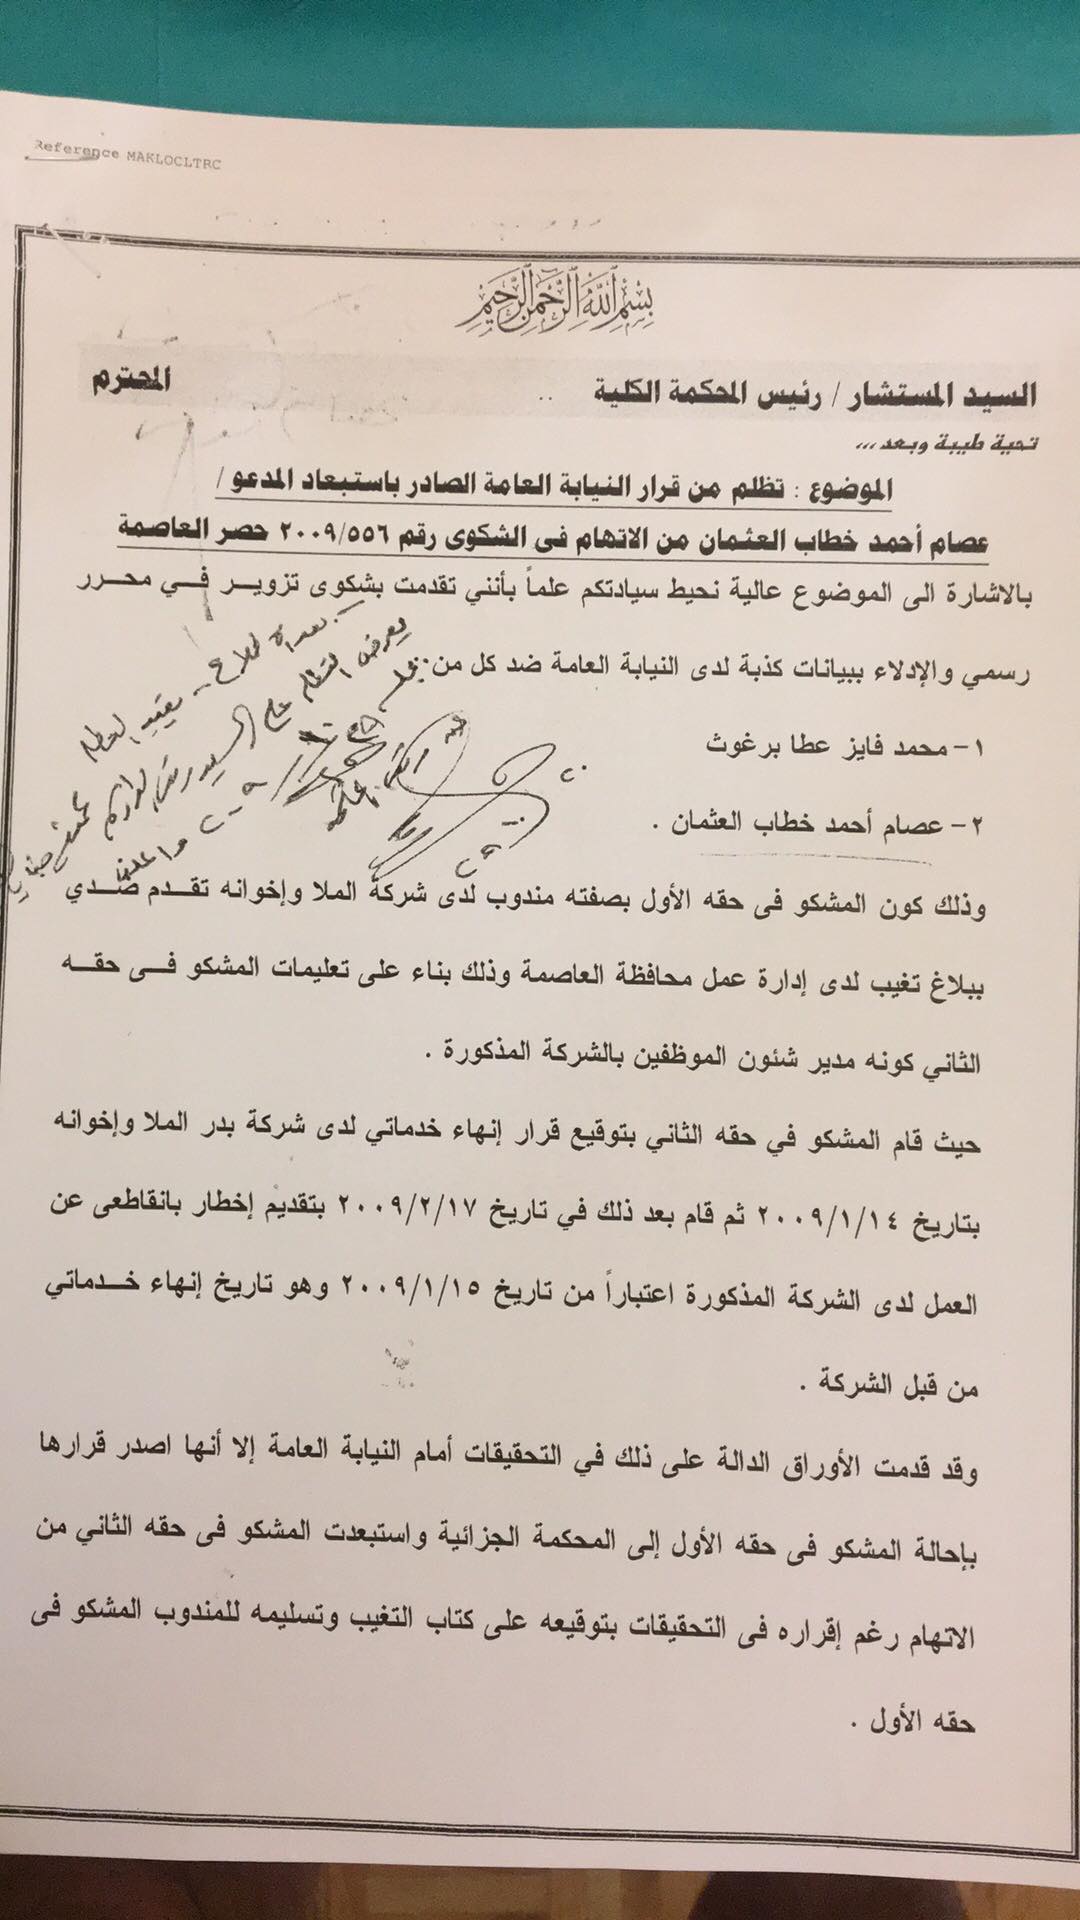 Reference MAKLOCLTRC
بسم الله الرحمن الرحيم
السيد المستشار / رئيس المحكمة الكلية .. المحترم
تحية طيبة وبعد ,,,
الموضوع : تظلم من قرار النيابة العامة الصادر باستبعاد المدعو /
عصام أحمد خطاب العثمان من الاتهام فى الشكوى رقم ٢٠٠٩/٥٥٦ حصر العاصمة
بالاشارة الى الموضوع عالية نحيط سيادتكم علماً بأنني تقدمت بشكوى تزوير في محرر
رسمي والإدلاء ببيانات كذبة لدى النيابة العامة ضد كل من:
١- محمد فايز عطا برغوث
٢- عصام أحمد خطاب العثمان .
يعرض التظلم على السيد
وذلك كون المشكو فى حقه الأول بصفته مندوب لدى شركة الملا وإخوانه تقدم ضدي
ببلاغ تغيب لدى إدارة عمل محافظة العاصمة وذلك بناء على تعليمات المشكو فى حقه
الثاني كونه مدير شئون الموظفين بالشركة المذكورة .
حيث قام المشكو في حقه الثاني بتوقيع قرار إنهاء خدماتي لدى شركة بدر الملا وإخوانه
بتاريخ ٢٠٠٩/١/١٤ ثم قام بعد ذلك في تاريخ ٢٠٠٩/٢/١٧ بتقديم إخطار بانقاطعى عن
العمل لدى الشركة المذكورة اعتباراً من تاريخ ٢٠٠٩/١/١٥ وهو تاريخ إنهاء خدماتي
من قبل الشركة .
وقد قدمت الأوراق الدالة على ذلك في التحقيقات أمام النيابة العامة إلا أنها اصدر قرارها
بإحالة المشكو فى حقه الأول إلى المحكمة الجزائية واستبعدت المشكو فى حقه الثاني من
الاتهام رغم إقراره فى التحقيقات بتوقيعه على كتاب التغيب وتسليمه للمندوب المشكو فى
حقه الأول .